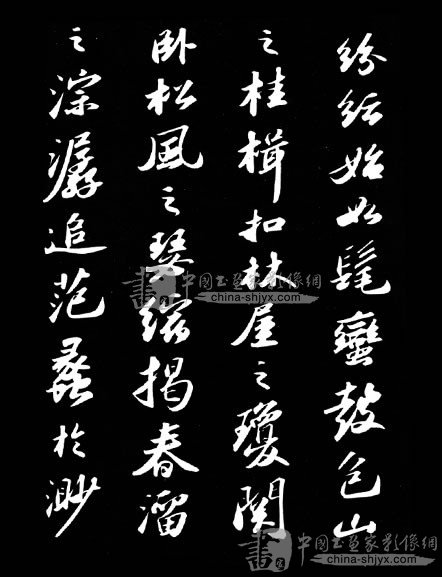 紛紜始如髦蠻鼓包山
之桂楫扣林屋之瓊關
卧松風之瑟縮揭春溜
之淙潺追范蠡於渺
中國书画家影像網
china-shjyx.com
中國书画家影像網
china-shjyx.com